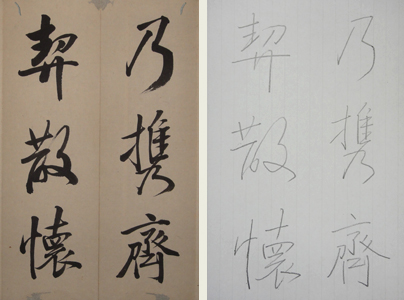 乃携齊
契散懷
乃携齊
契散懷